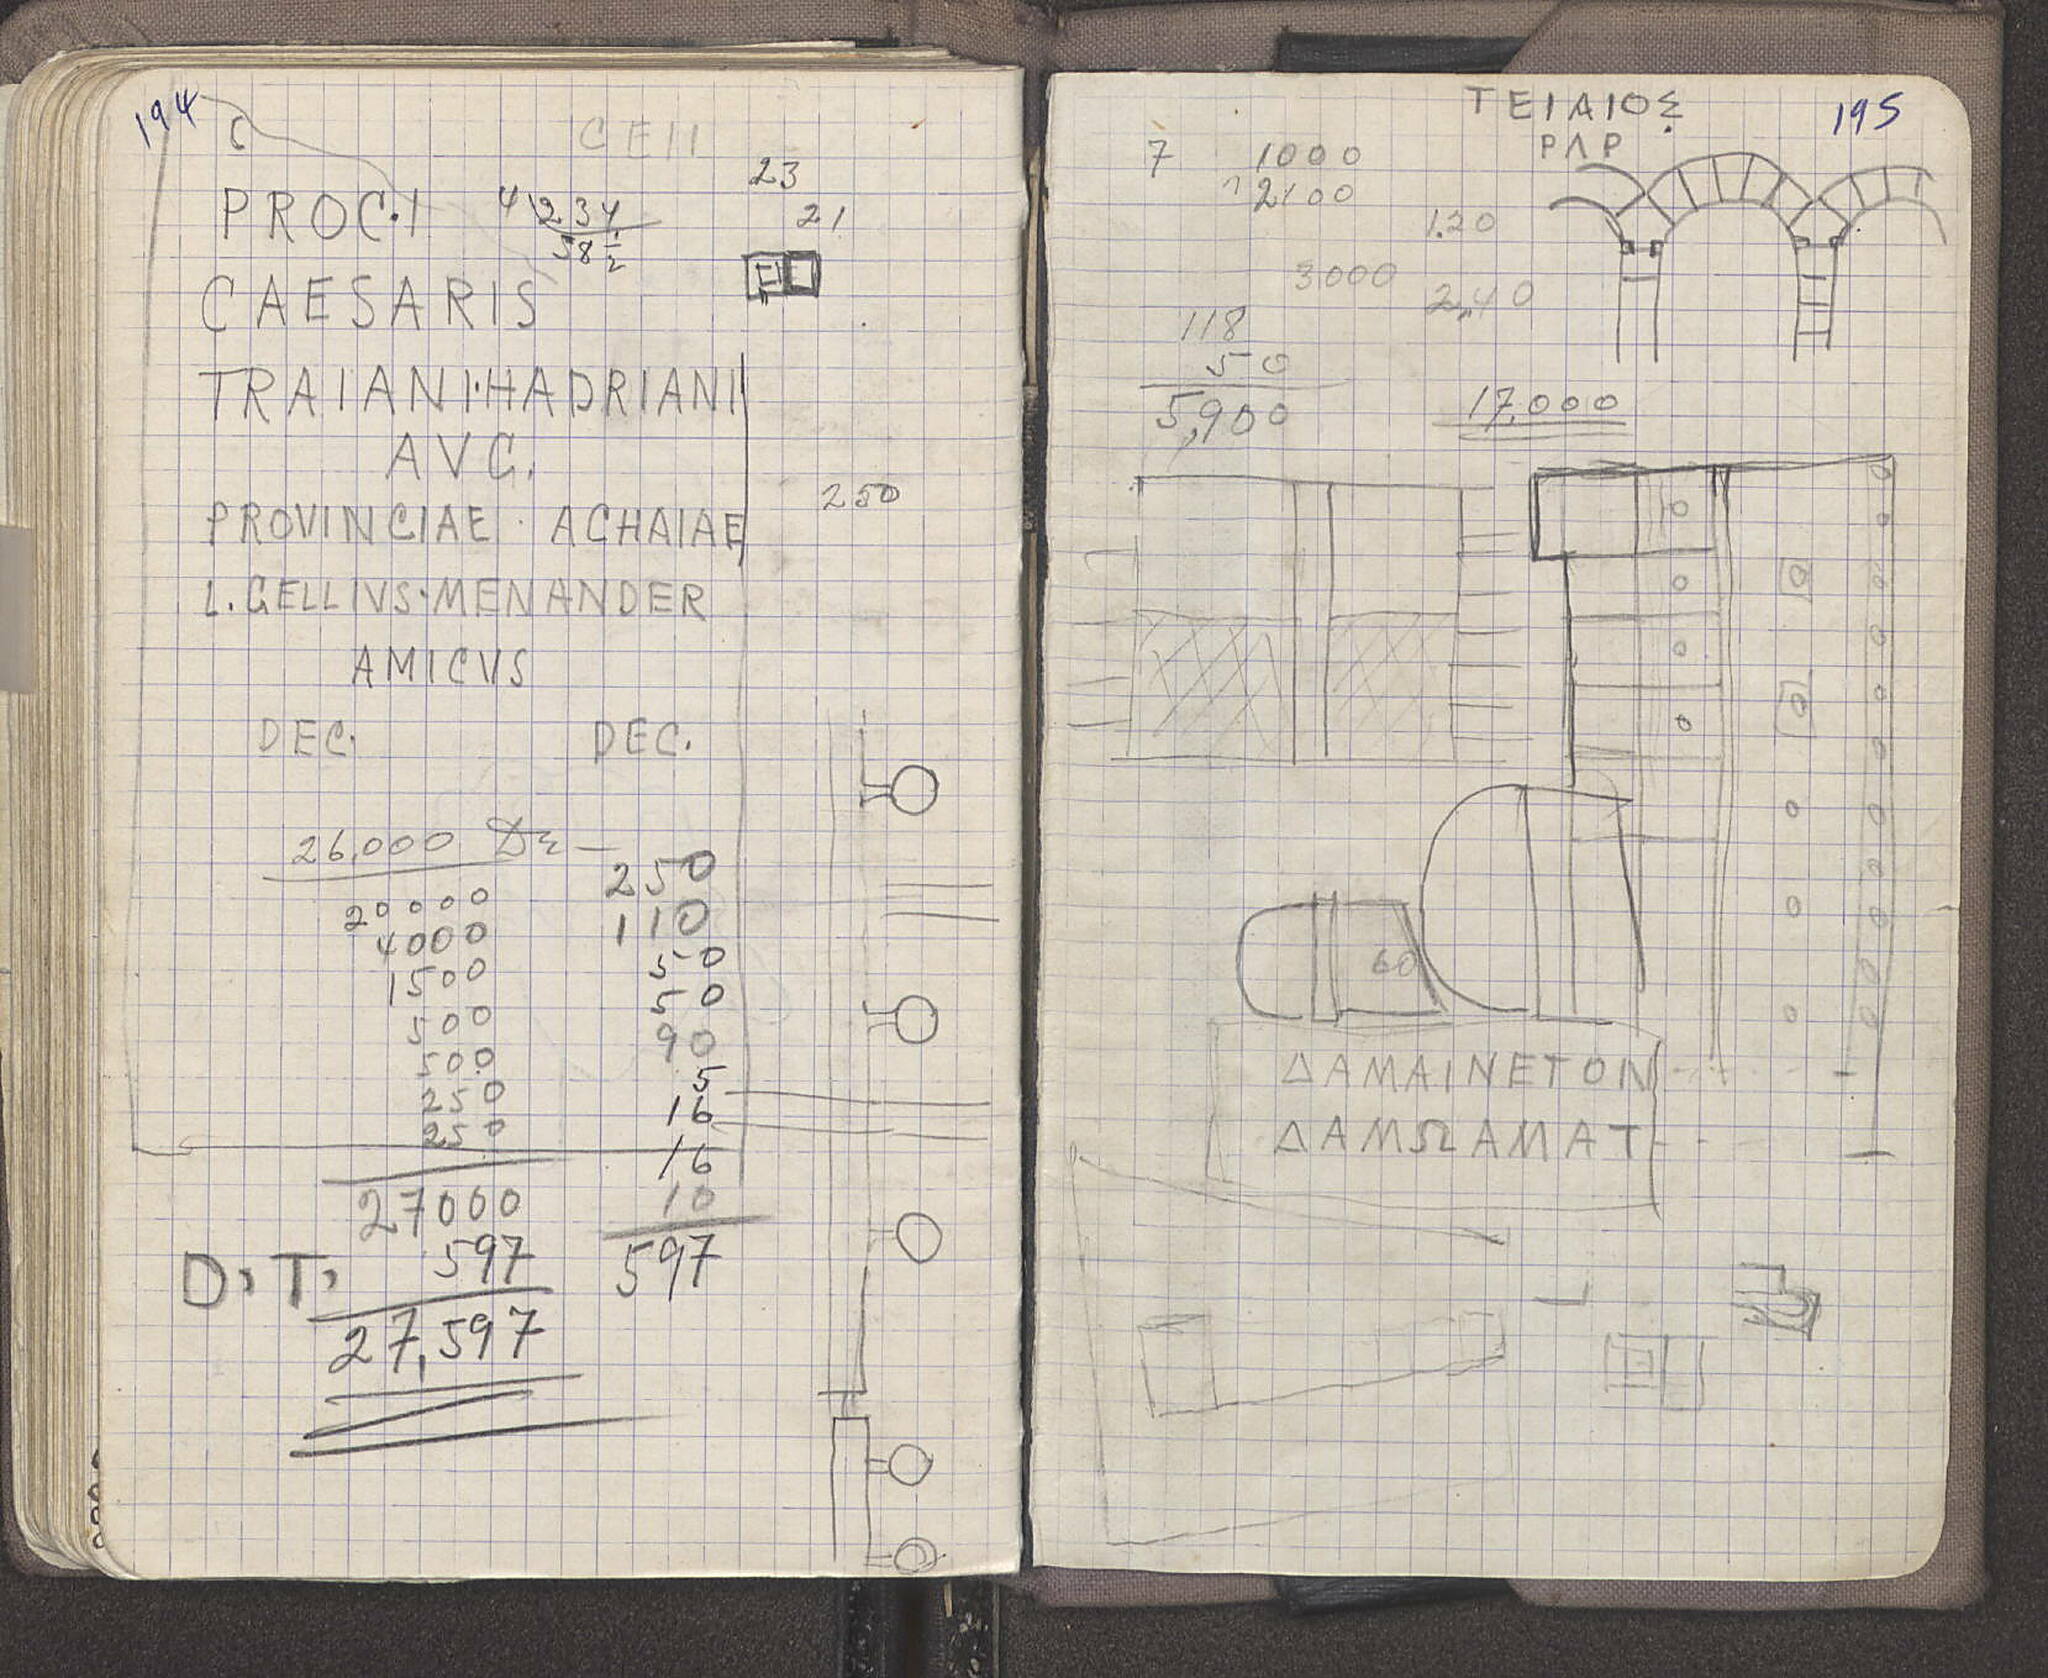 194
C
CEII
23
PROC.I
4 234
21
58 1/2
CAESARIS
TRAIANI·HADRIANI
AVC.
250
PROVINCIAE · ACHAIAE
L. GELLIVS·MENANDER
AMICVS
DEC. DEC.
26,000
20000
4000
1500
500
500
250
250
27000
597
27,597
D, T,
250
110
50
50
90
5
16
16
10
597
ΤΕΙΔΙΟΣ 195
7 1000
2100
1.20
3000
2,40
118
50
5,900
17,000
60
ΔΑΜΑΙΝΕΤΟΝ
ΔΑΜΩΑΜΑΤ